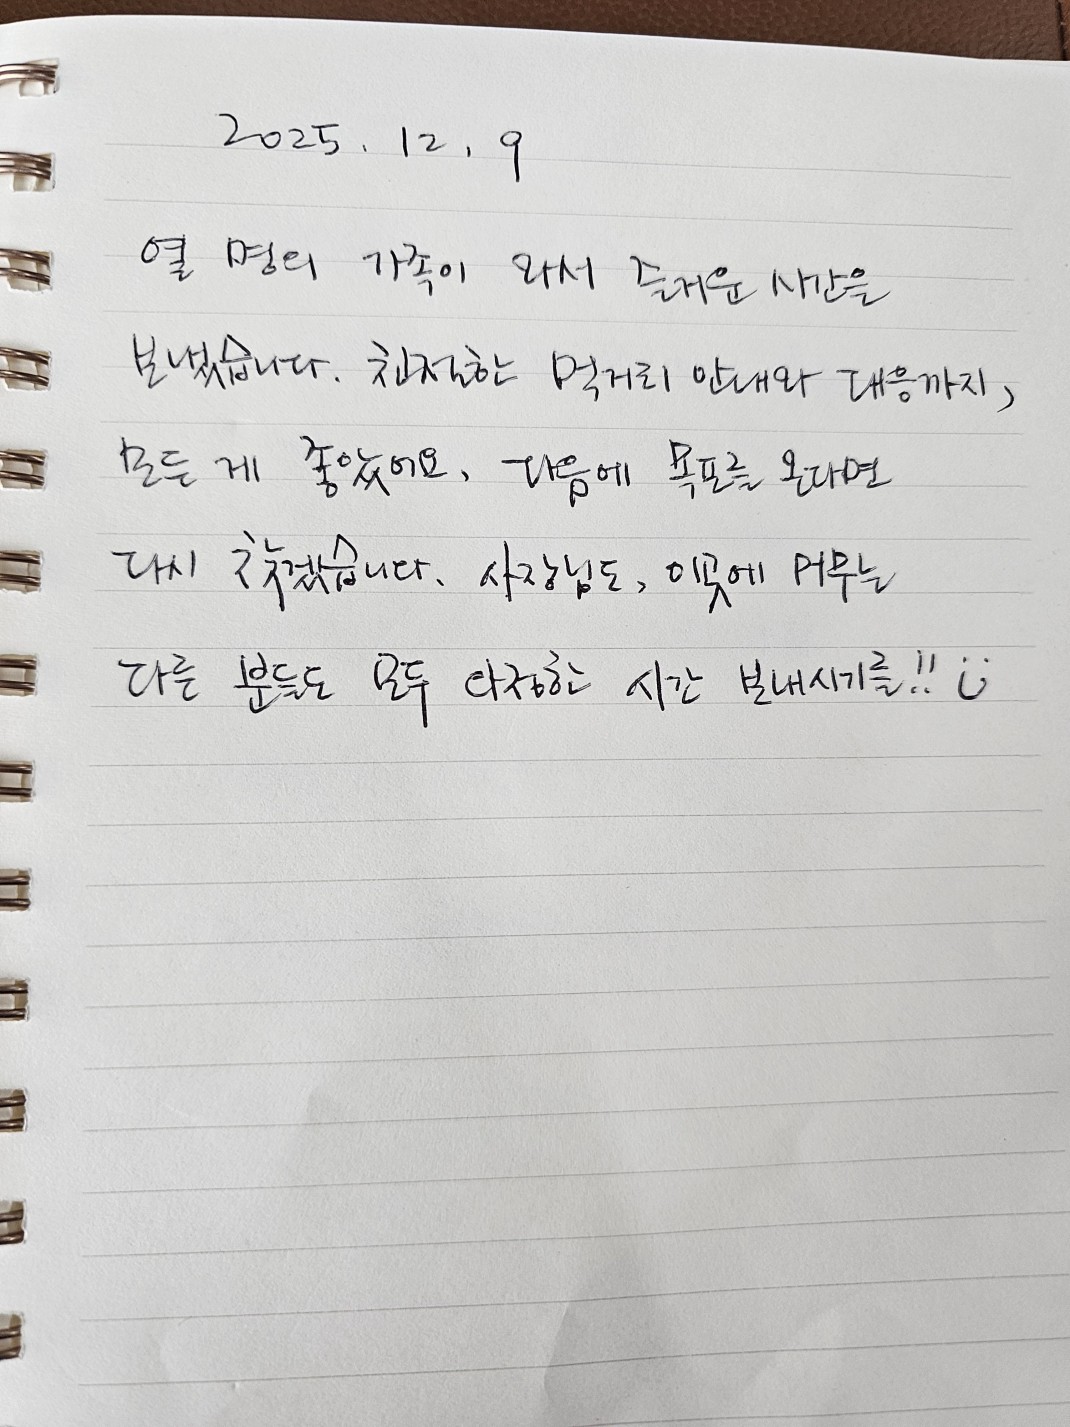 2025. 12. 9
열 명의 가족이 와서 즐거운 시간을
보냈습니다. 친절한 먹거리 안내와 대응까지,
모든 게 좋았어요. 다음에 목포를 온다면
다시 찾겠습니다. 사장님도, 이곳에 머무는
다른 분들도 모두 다정한 시간 보내시기를!!